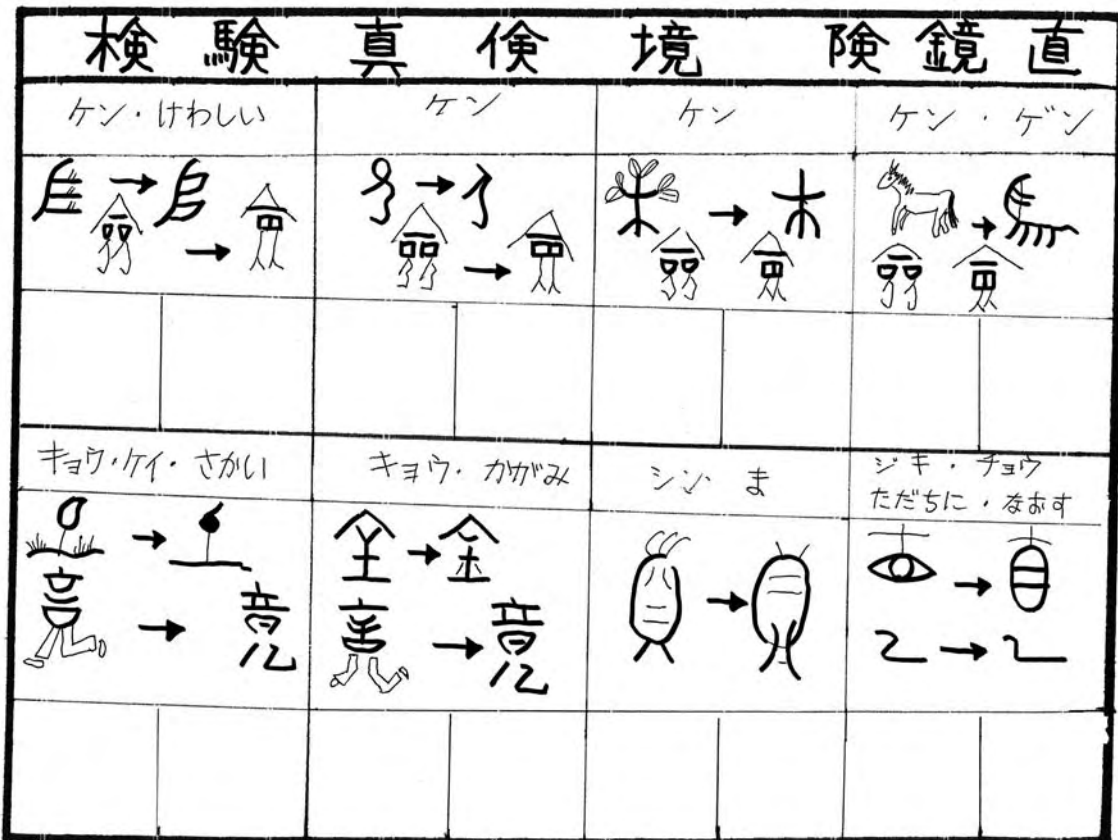 検 験 真 倹 境 険 鏡 直
ケン・けわしい
ケン
ケン
ケン・ゲン
キョウ・ケイ・さかい
キョウ・かがみ
シン・ま
ジキ・チョウ
ただちに・なおす